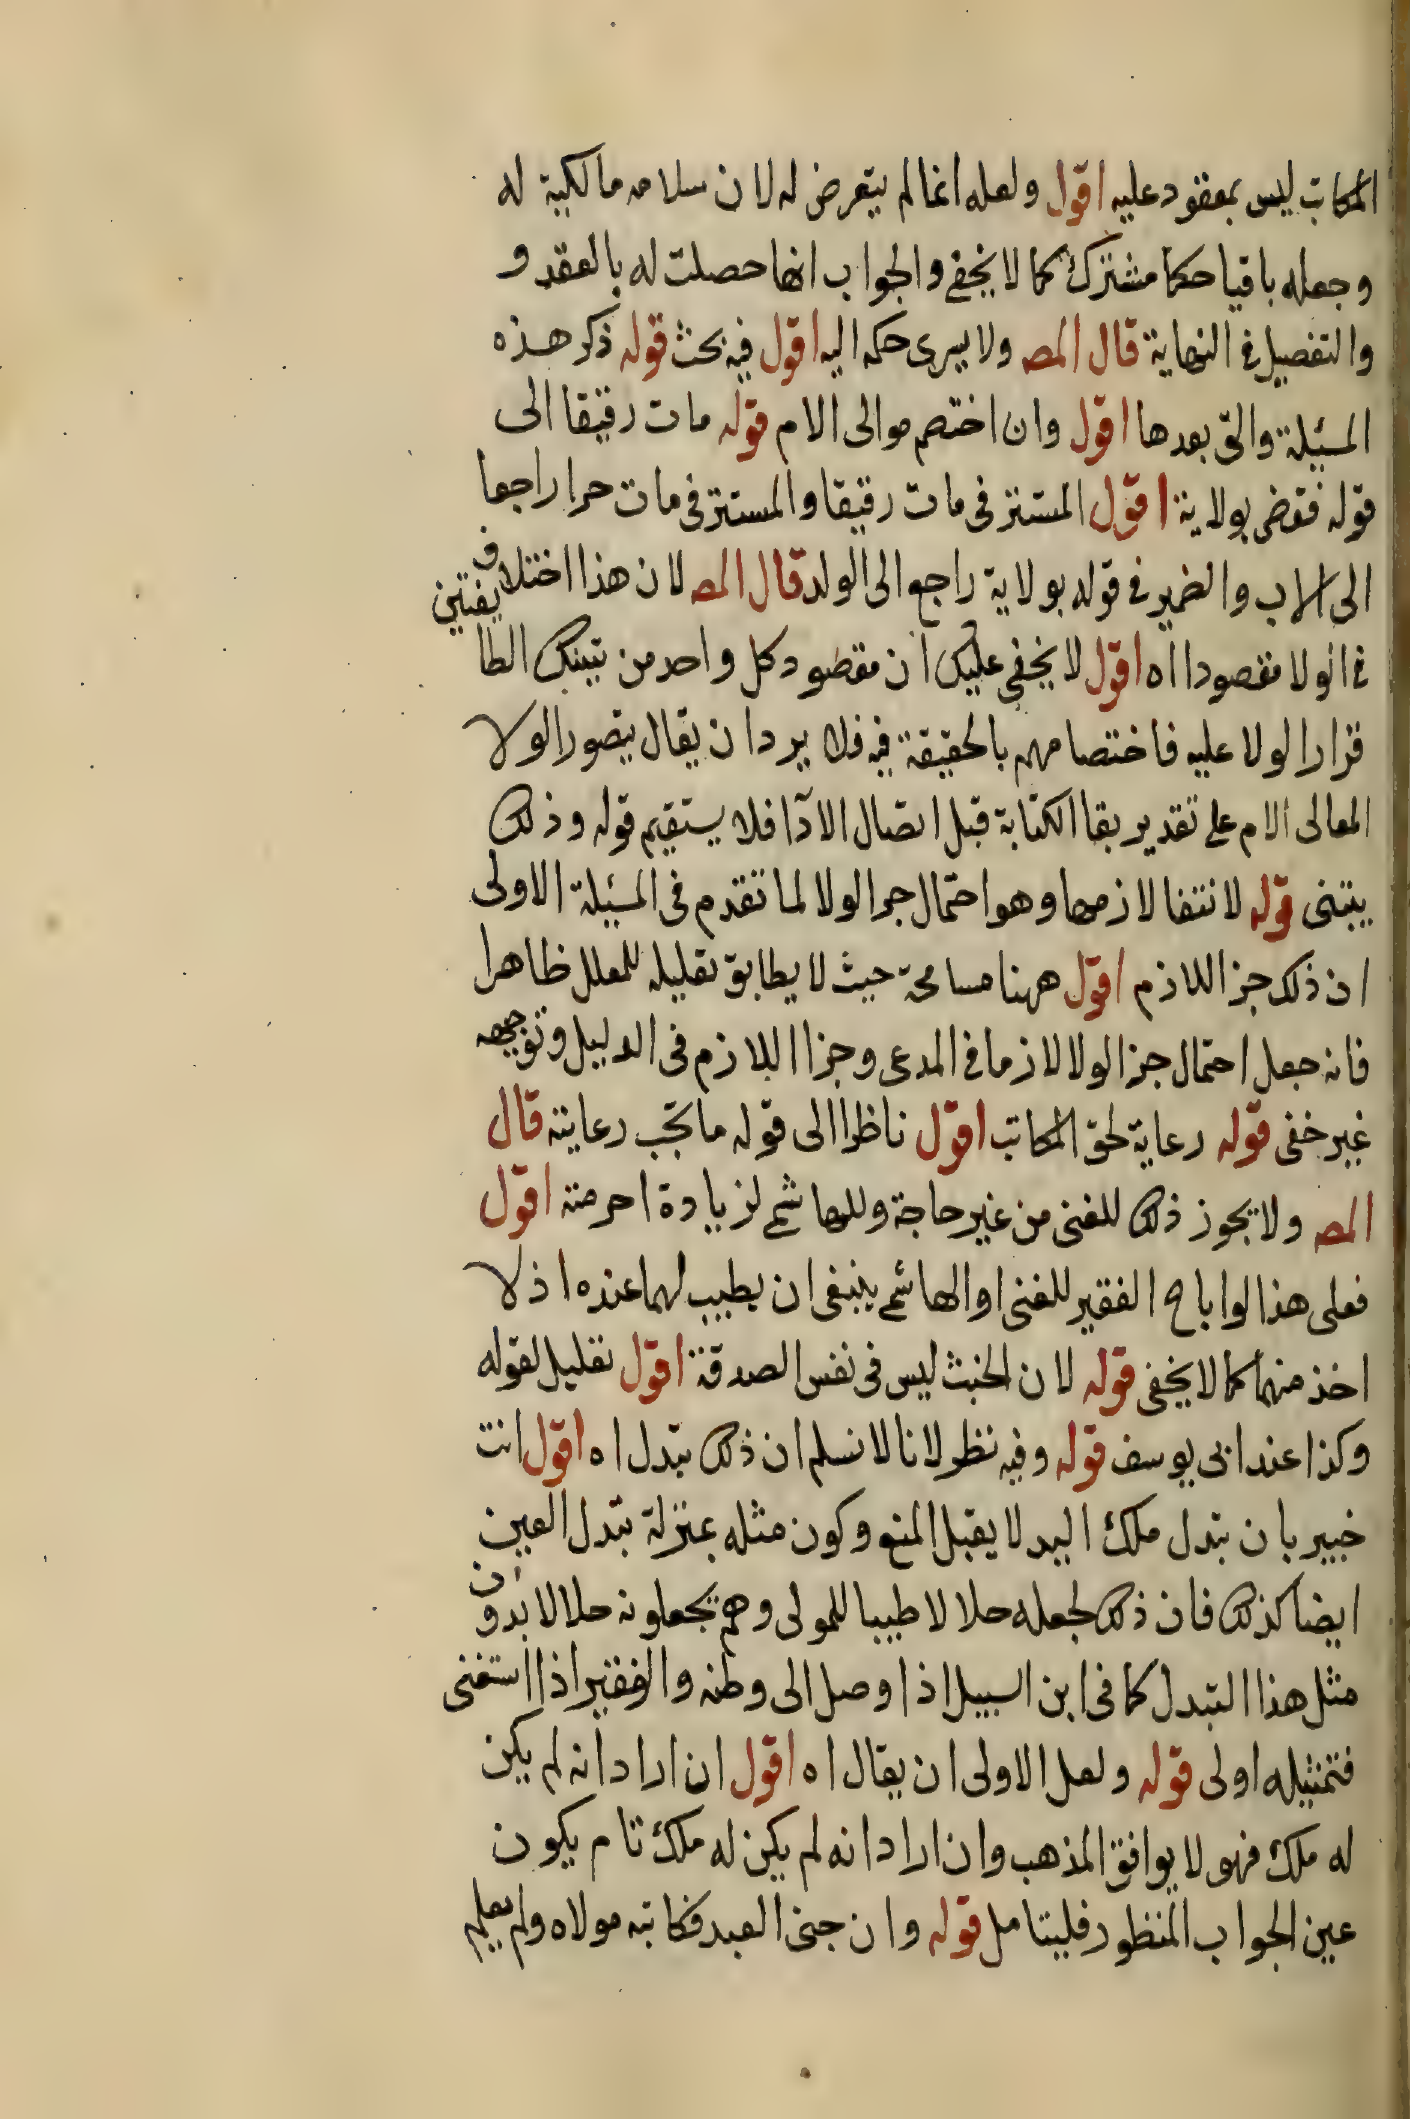 المكاتب ليس بمعقود عليه اقول ولعله انما لم يتعرض له لان سلامه مالكية له
وجعله باقيا حكما مشترك كما لا يخفى والجواب انها حصلت له بالعقد و
والتفصيل في النهاية قال المص ولا يسرى حكمه اليه اقول فيه بحث قوله ذكر هذه
المسئلة والتى بعدها اقول وان اختصم موالى الام قوله مات رقيقا الى
قوله فقضى بولاية اقول المستتر فى مات رقيقا والمستتر فى مات حرا راجعا
الى الاب والضمير في قوله بولاية راجع الى الولد قال المص لان هذا اختلاف
في الولا مقصودا اه اقول لا يخفى عليك ان مقصود كل واحد من تينك الطايفتين
قرار الولا عليه فاختصامهم بالحقيقة فيه فلا يرد ان يقال يتصور الولا
لموالى الام على تقدير بقا الكتابة قبل اتصال الادآ فلا يستقيم قوله وذلك
يبتنى قوله لانتفا لازمها وهو احتمال جر الولا لما تقدم فى المسئلة الاولى
ان ذلك جز اللازم اقول ههنا مسامحة حيث لا يطابق تعليله للمعلل ظاهرا
فانه جعل احتمال جر الولا لازما في المدعى وجزا اللازم فى الدليل وتوجيهه
غير خفى قوله رعاية لحق المكاتب اقول ناظرا الى قوله ما تجب رعايته قال
المص ولا يجوز ذلك للغنى من غير حاجة وللهاشمى لزيادة احرمته اقول
فعلى هذا لو اباح الفقير للغنى او الهاشمى ينبغى ان يطيب لهما عنده اذ لا
اخذ منهما كما لا يخفى قوله لان الخبث ليس فى نفس الصدقة اقول تعليل لقوله
وكذا عند ابى يوسف قوله وفيه نظر لانا لا نسلم ان ذلك تبدل اه اقول انت
خبير بان تبدل ملك اليد لا يقبل المنع وكون مثله بمنزلة تبدل العين
ايضا كذلك فان ذلك لجعله حلالا طيبا للمولى وهم يجعلونه حلالا بدون
مثل هذا التبدل كما فى ابن السبيل اذا وصل الى وطنه والفقير اذا استغنى
فتمثيله اولى قوله ولعل الاولى ان يقال اه اقول ان اراد انه لم يكن
له ملك فهو لا يوافق المذهب وان اراد انه لم يكن له ملك تام يكون
عين الجواب المنظور فليتامل قوله وان جنى العبد فكاتبه مولاه ولم يعلم